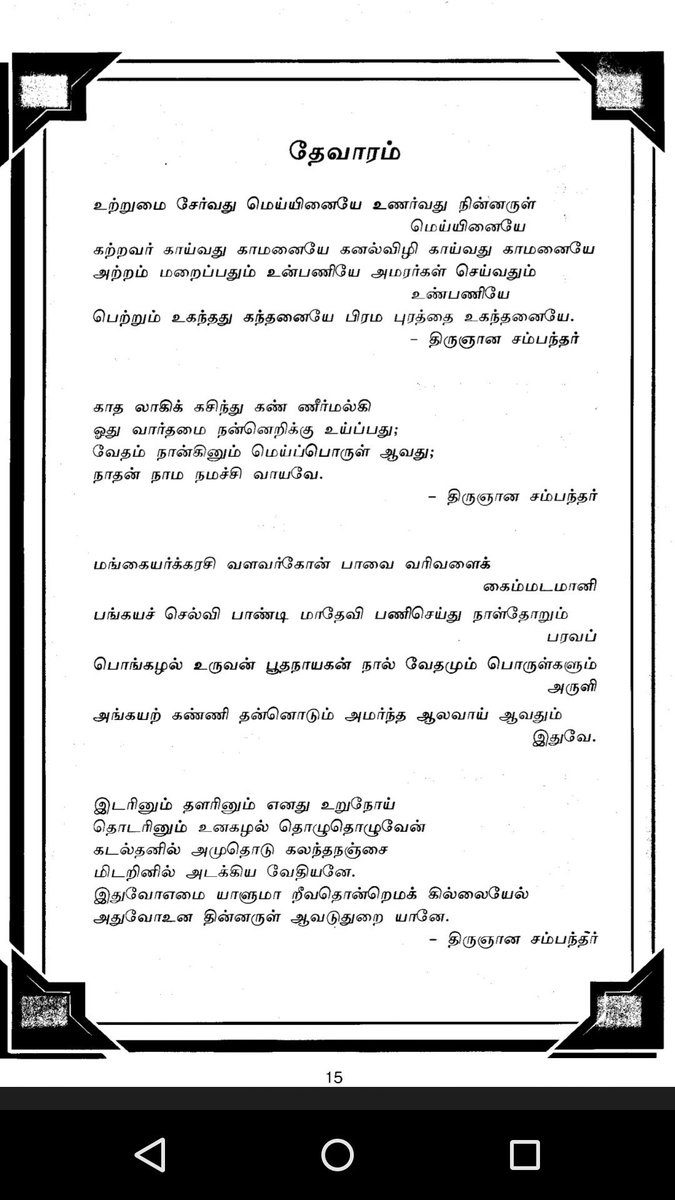 தேவாரம்
உற்றுமை சேர்வது மெய்யினையே உணர்வது நின்னருள்
மெய்யினையே
கற்றவர் காய்வது காமனையே கனல்விழி காய்வது காமனையே
அற்றம் மறைப்பதும் உன்பணியே அமரர்கள் செய்வதும்
உண்பணியே
பெற்றும் உகந்தது கந்தனையே பிரம புரத்தை உகந்தனையே.
- திருஞான சம்பந்தர்
காத லாகிக் கசிந்து கண் ணீர்மல்கி
ஓது வார்தமை நன்னெறிக்கு உய்ப்பது;
வேதம் நான்கினும் மெய்ப்பொருள் ஆவது;
நாதன் நாம நமச்சி வாயவே.
- திருஞான சம்பந்தர்
மங்கையர்க்கரசி வளவர்கோன் பாவை வரிவளைக்
கைம்மடமானி
பங்கயச் செல்வி பாண்டி மாதேவி பணிசெய்து நாள்தோறும்
பரவப்
பொங்கழல் உருவன் பூதநாயகன் நால் வேதமும் பொருள்களும்
அருளி
அங்கயற் கண்ணி தன்னொடும் அமர்ந்த ஆலவாய் ஆவதும்
இதுவே.
இடரினும் தளரினும் எனது உறுநோய்
தொடரினும் உனகழல் தொழுதொழுவேன்
கடல்தனில் அமுதொடு கலந்தநஞ்சை
மிடறினில் அடக்கிய வேதியனே.
இதுவோஎமை யாளுமா றீவதொன்றெமக் கில்லையேல்
அதுவோஉன தின்னருள் ஆவடுதுறை யானே.
- திருஞான சம்பந்தர்
15